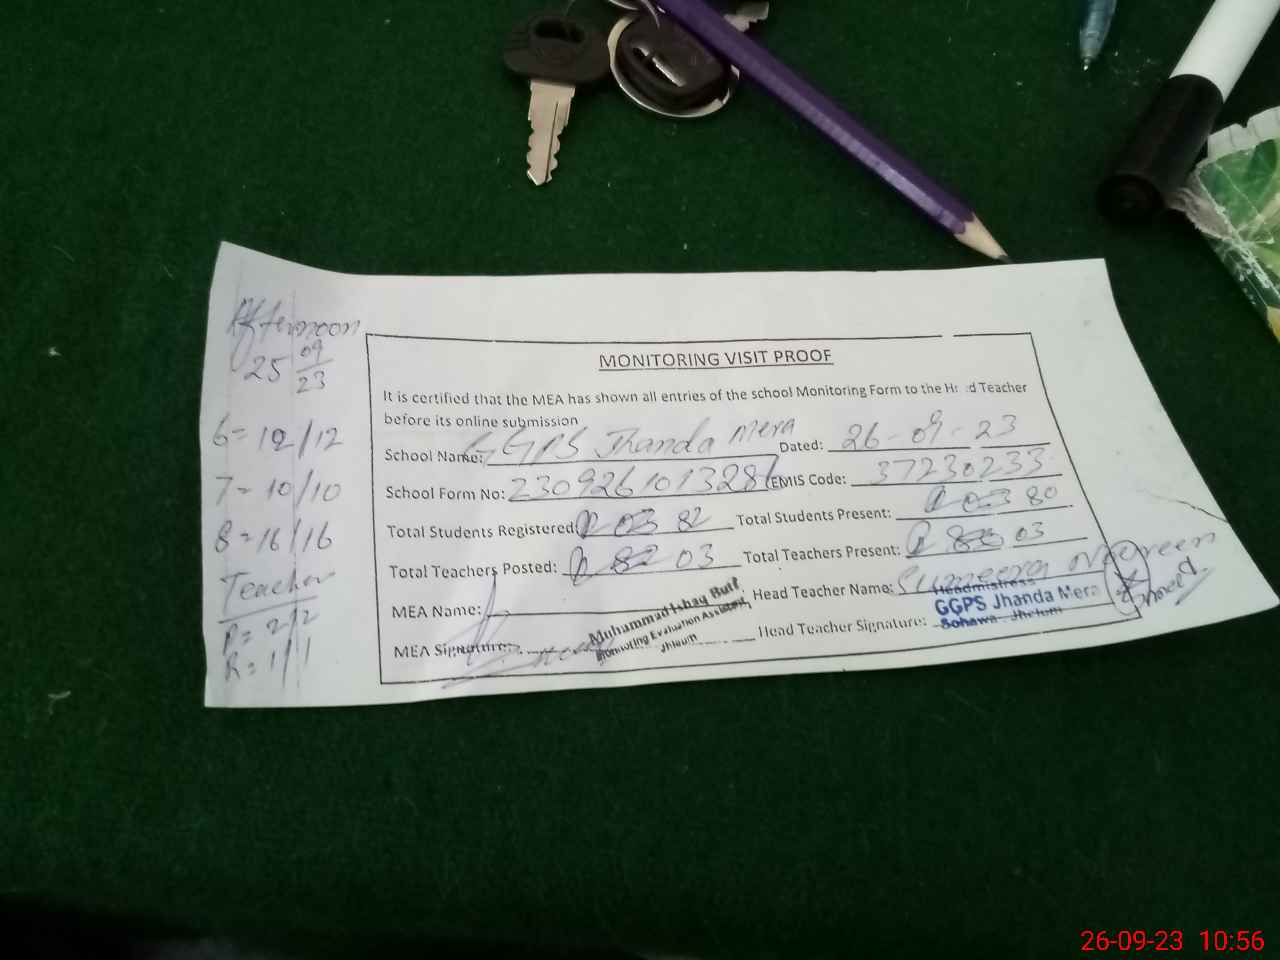 Afternoon
25 09/23
6= 12/12
7= 10/10
8= 16/16
Teacher
P= 2/2
R= 1/1
MONITORING VISIT PROOF
It is certified that the MEA has shown all entries of the school Monitoring Form to the He d Teacher
before its online submission
School Name: GGPS Jhanda Mera Dated: 26-09-23
School Form No: 2309261013286 EMIS Code: 37230233
Total Students Registered 82 Total Students Present: 80
Total Teachers Posted: 03 Total Teachers Present: 03
MEA Name: Head Teacher Name: Sumeera Noreen
Muhammad Ishaq Butt
Monitoring Evaluation Assistant
Jhleum
Headmistress
GGPS Jhanda Mera
Sohawa. Jhelum
MEA Signature: Head Teacher Signature:
26-09-23 10:56